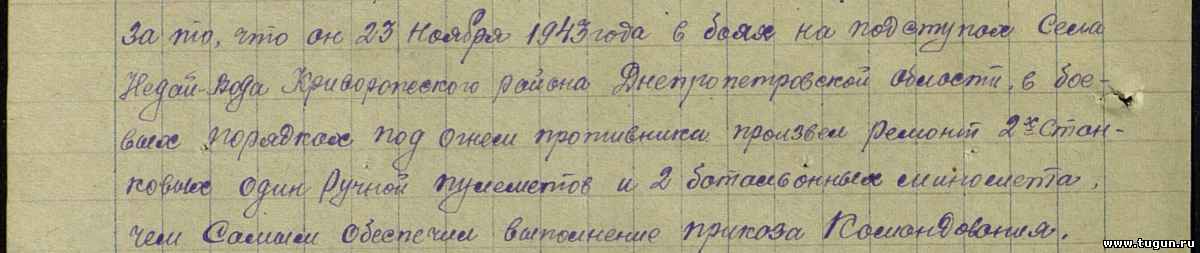 За то, что он 23 Ноября 1943 года в боях на подступах Села
Недай-Вода Криворожского района Днепропетровской области, в бое-
вых порядках под огнем противника произвел ремонт 2х Стан-
ковых один Ручной пулеметов и 2 батальонных миномета,
чем Самым Обеспечил выполнение приказа Командования.
www.tugun.ru